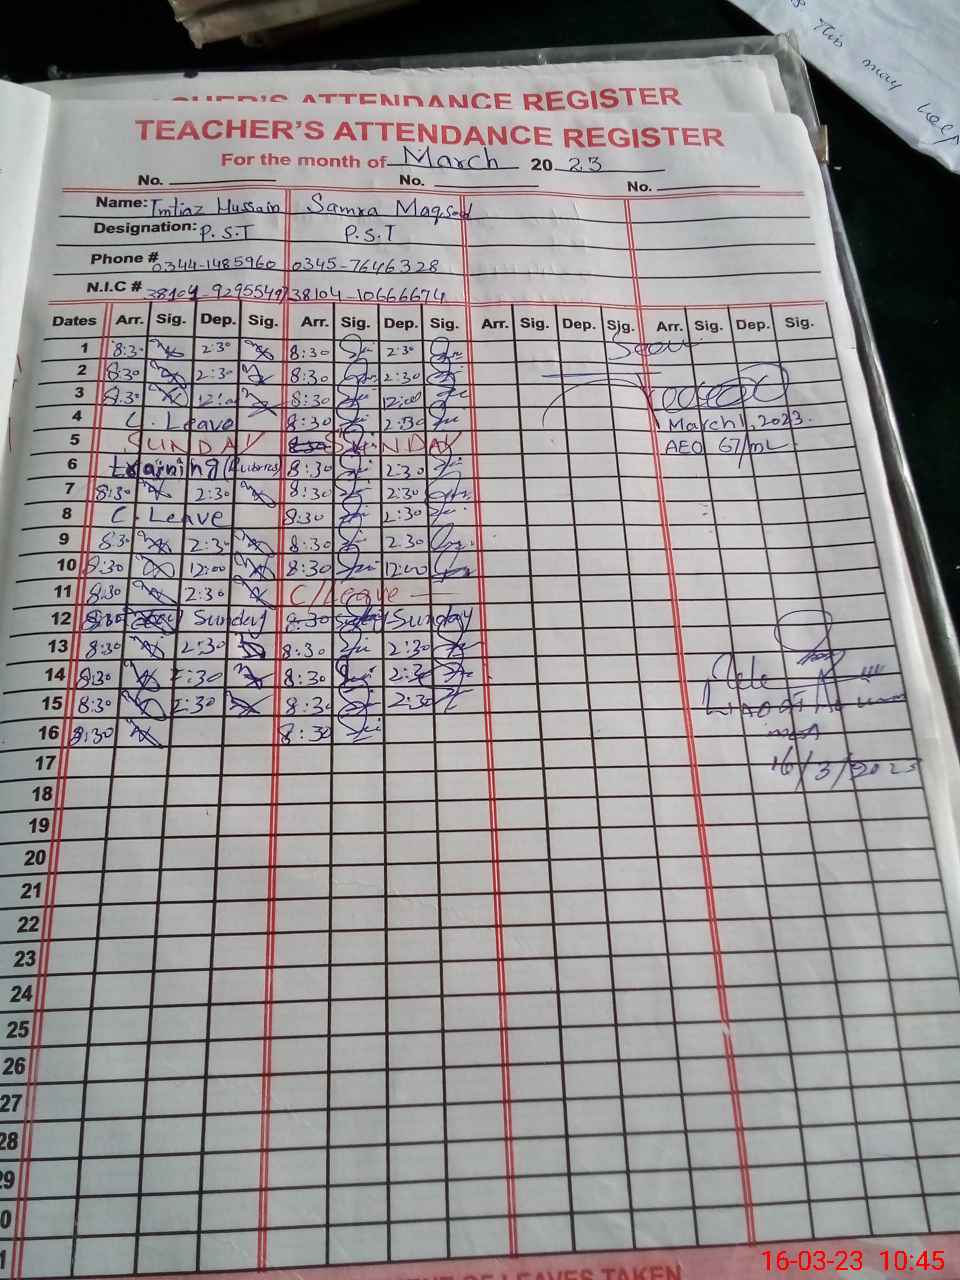 This may help
TEACHER'S ATTENDANCE REGISTER
TEACHER'S ATTENDANCE REGISTER
For the month of March 2023
No. No. No.
Name: Imtiaz Hussain Samra Maqsood
Designation: P.S.T P.S.T
Phone # 0344-1485960 0345-7646328
N.I.C # 38104-9295549 38104-10666674
Dates Arr. Sig. Dep. Sig. Arr. Sig. Dep. Sig. Arr. Sig. Dep. Sig. Arr. Sig. Dep. Sig.
1 8:30 2:30 8:30 2:30
2 8:30 2:30 8:30 2:30
3 8:30 12:00 8:30 12:00
4 C. Leave 8:30 2:30 March 1, 2023.
5 SUNDAY SUNDAY AEO 67/ML
6 training (Rubrics) 8:30 2:30
7 8:30 2:30 8:30 2:30
8 C. Leave 8:30 2:30
9 8:30 2:30 8:30 2:30
10 8:30 12:00 8:30 12:00
11 8:30 2:30 C/Leave
12 8:30 Sunday 8:30 Sunday Sunday
13 8:30 2:30 8:30 2:30
14 8:30 2:30 8:30 2:30
15 8:30 2:30 8:30 2:30
16 8:30 8:30
17 16/3/2023
18
19
20
21
22
23
24
25
26
27
28
29
0
1
OF LEAVES TAKEN
16-03-23 10:45